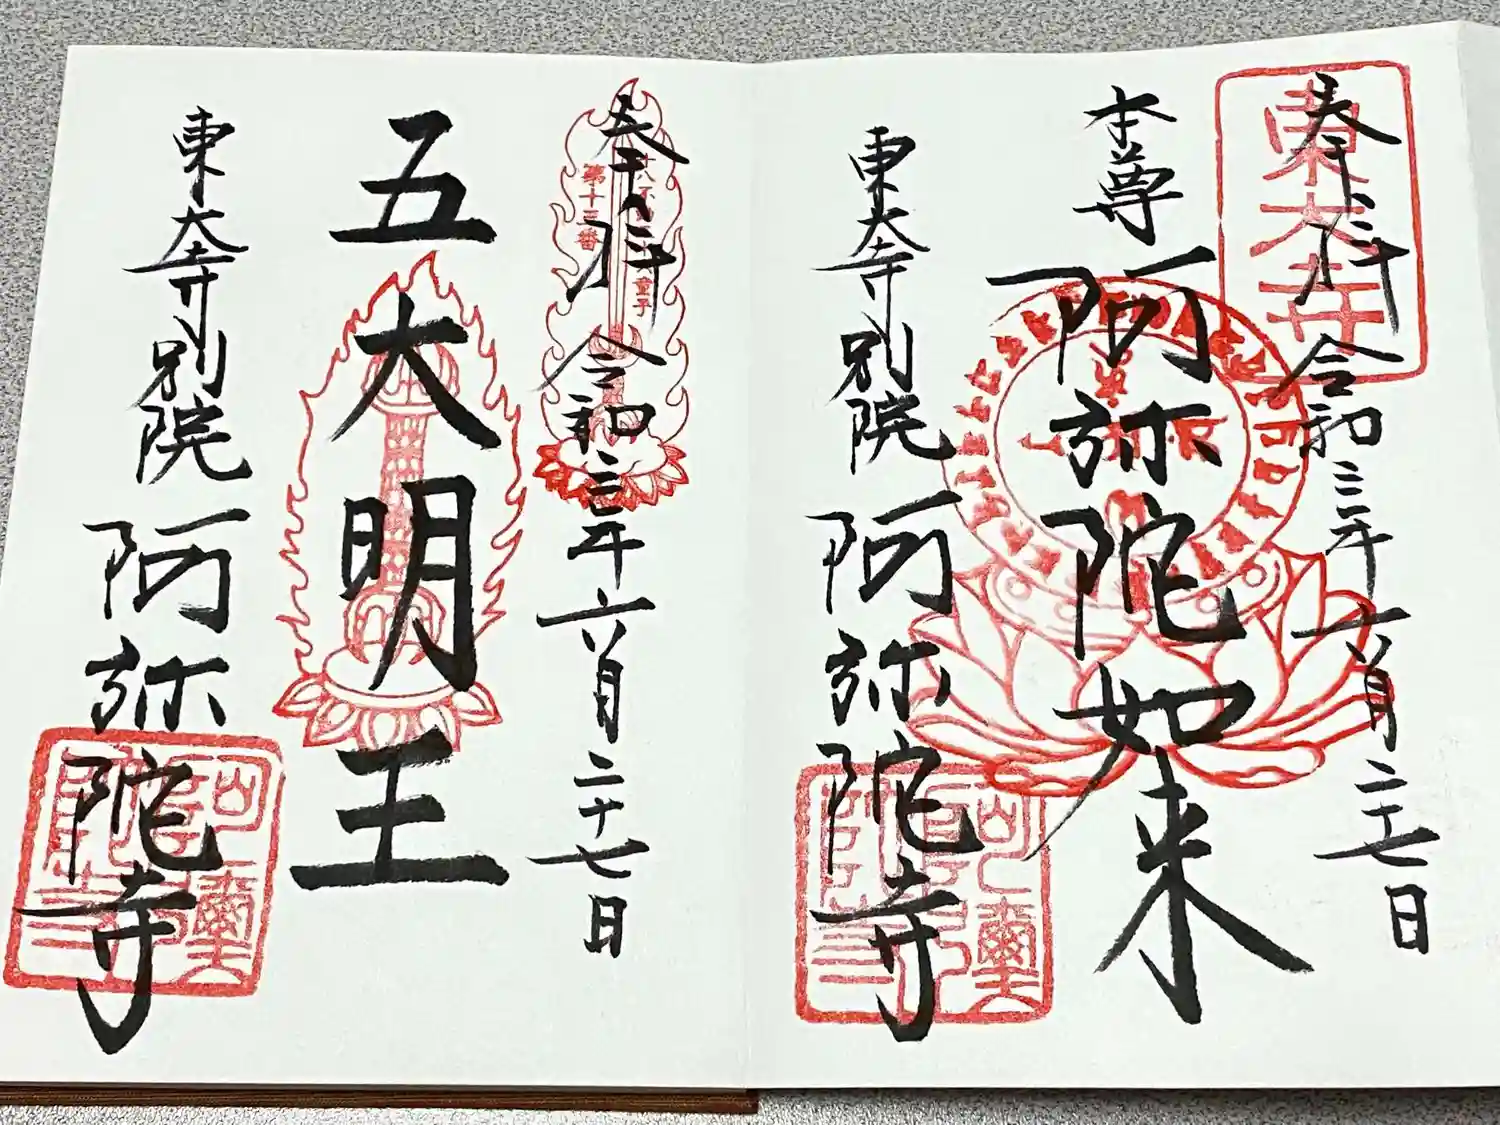 奉拝 令和三年六月二十七日
東大寺
本尊 阿弥陀如来
東大寺別院 阿弥陀寺
奉拝 令和三年六月二十七日
第十三番
五大明王
東大寺別院 阿弥陀寺